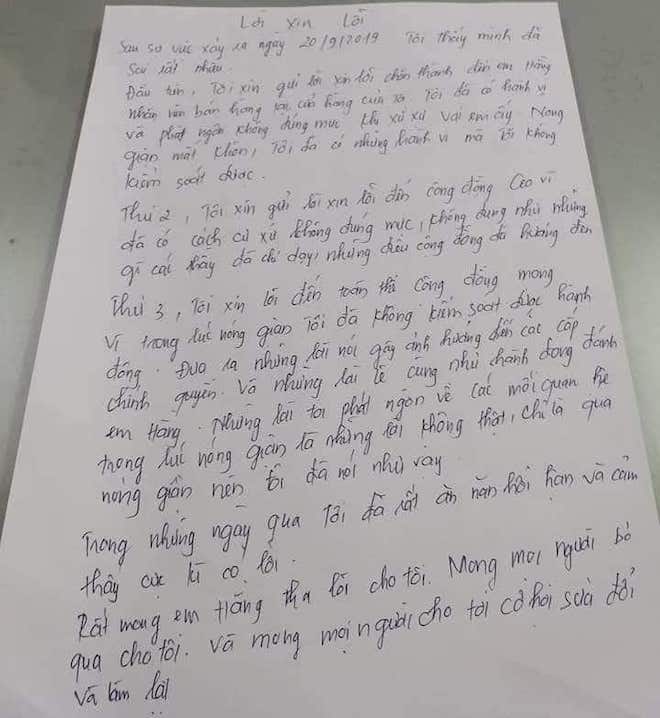 Lời xin lỗi
Sau sự việc xảy ra ngày 20/9/2019 Tôi thấy mình đã
sai rất nhiều.
Đầu tiên, Tôi xin gửi lời xin lỗi chân thành đến em Hằng
nhân viên bán hàng tại cửa hàng của tôi. Tôi đã có hành vi
và phát ngôn không đúng mực khi xử xự với em ấy. Nong
giận mất khôn, Tôi đã có những hành vi mà tôi không
kiểm soát được.
Thứ 2, Tôi xin gửi lời xin lỗi đến cộng đồng Ceo vì
đã có cách cư xử không đúng mực, không đúng như những
gì các thầy đã chỉ dạy, những điều cộng đồng đã hướng đến
Thứ 3, Tôi xin lỗi đến toàn thể cộng đồng mạng
vì trong lúc nóng giận tôi đã không kiểm soát được hành
động. Đưa ra những lời nói gây ảnh hưởng đến các cấp
chính quyền. Và những lời lẽ cũng như hành động đánh
em Hằng. Những lời tôi phát ngôn về các mối quan hệ
trong lúc nóng giận là những lời không thật, chỉ là quá
nóng giận nên tôi đã nói như vậy.
Trong những ngày qua Tôi đã rất ăn năn hối hận và cảm
thấy cực kì có lỗi.
Rất mong em Hằng tha lỗi cho tôi. Mong mọi người bỏ
qua cho tôi. Và mong mọi người cho tôi cơ hội sửa đổi
và làm lại